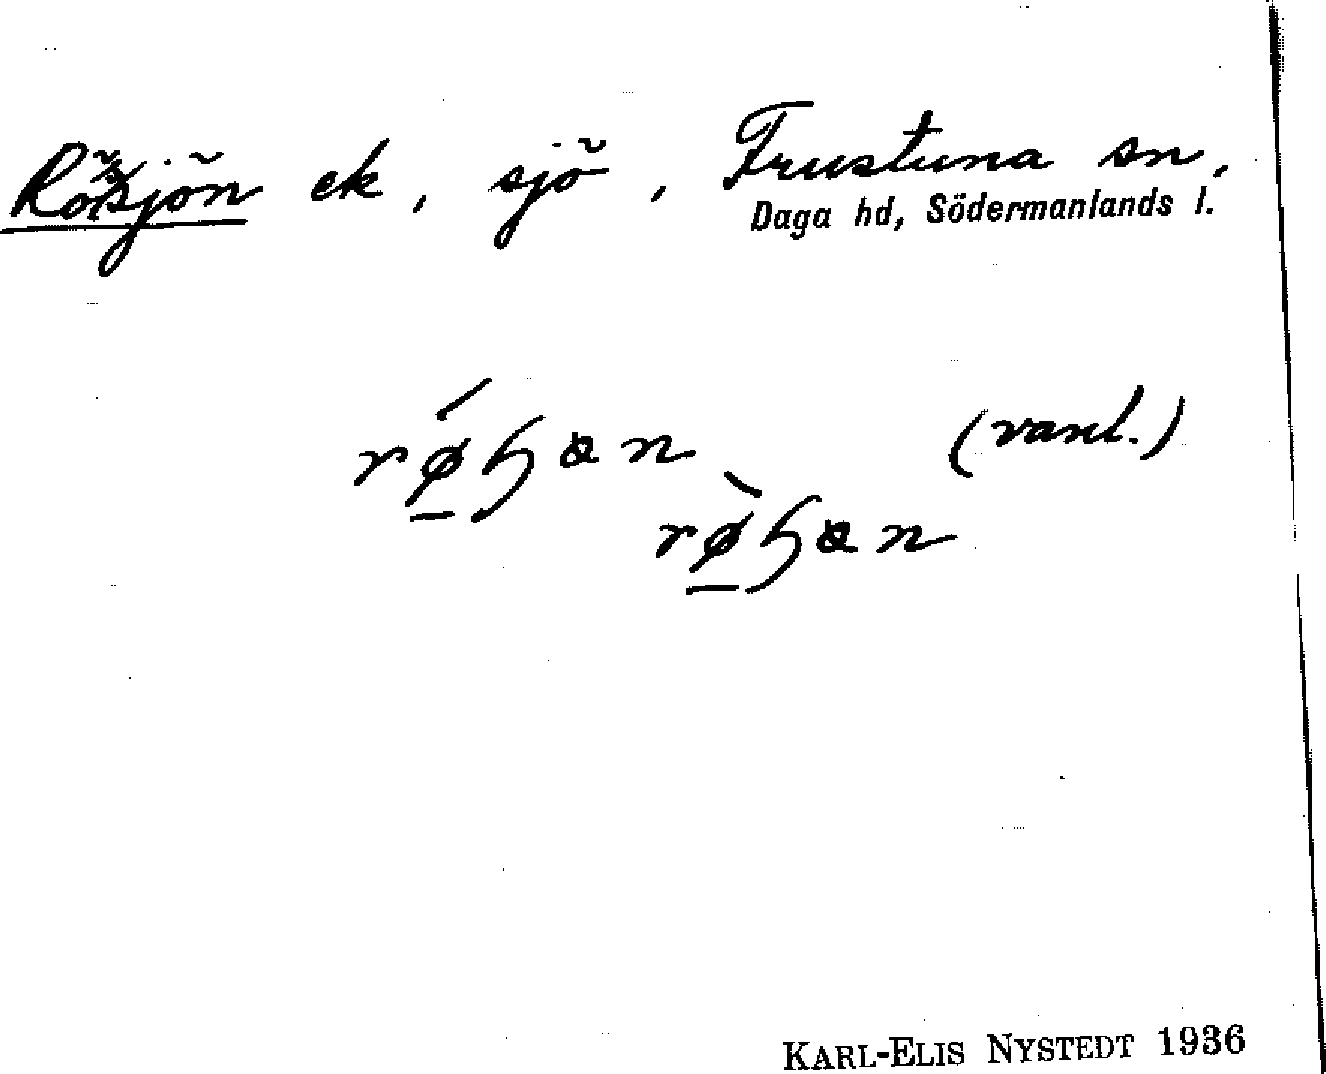 Rösjön ek, sjö, Frustuna sn,
Daga hd, Södermanlands l.
rǿ̱ɧɑn (vanl.)
rø̱̀ɧɑn
KARL-ELIS NYSTEDT 1936